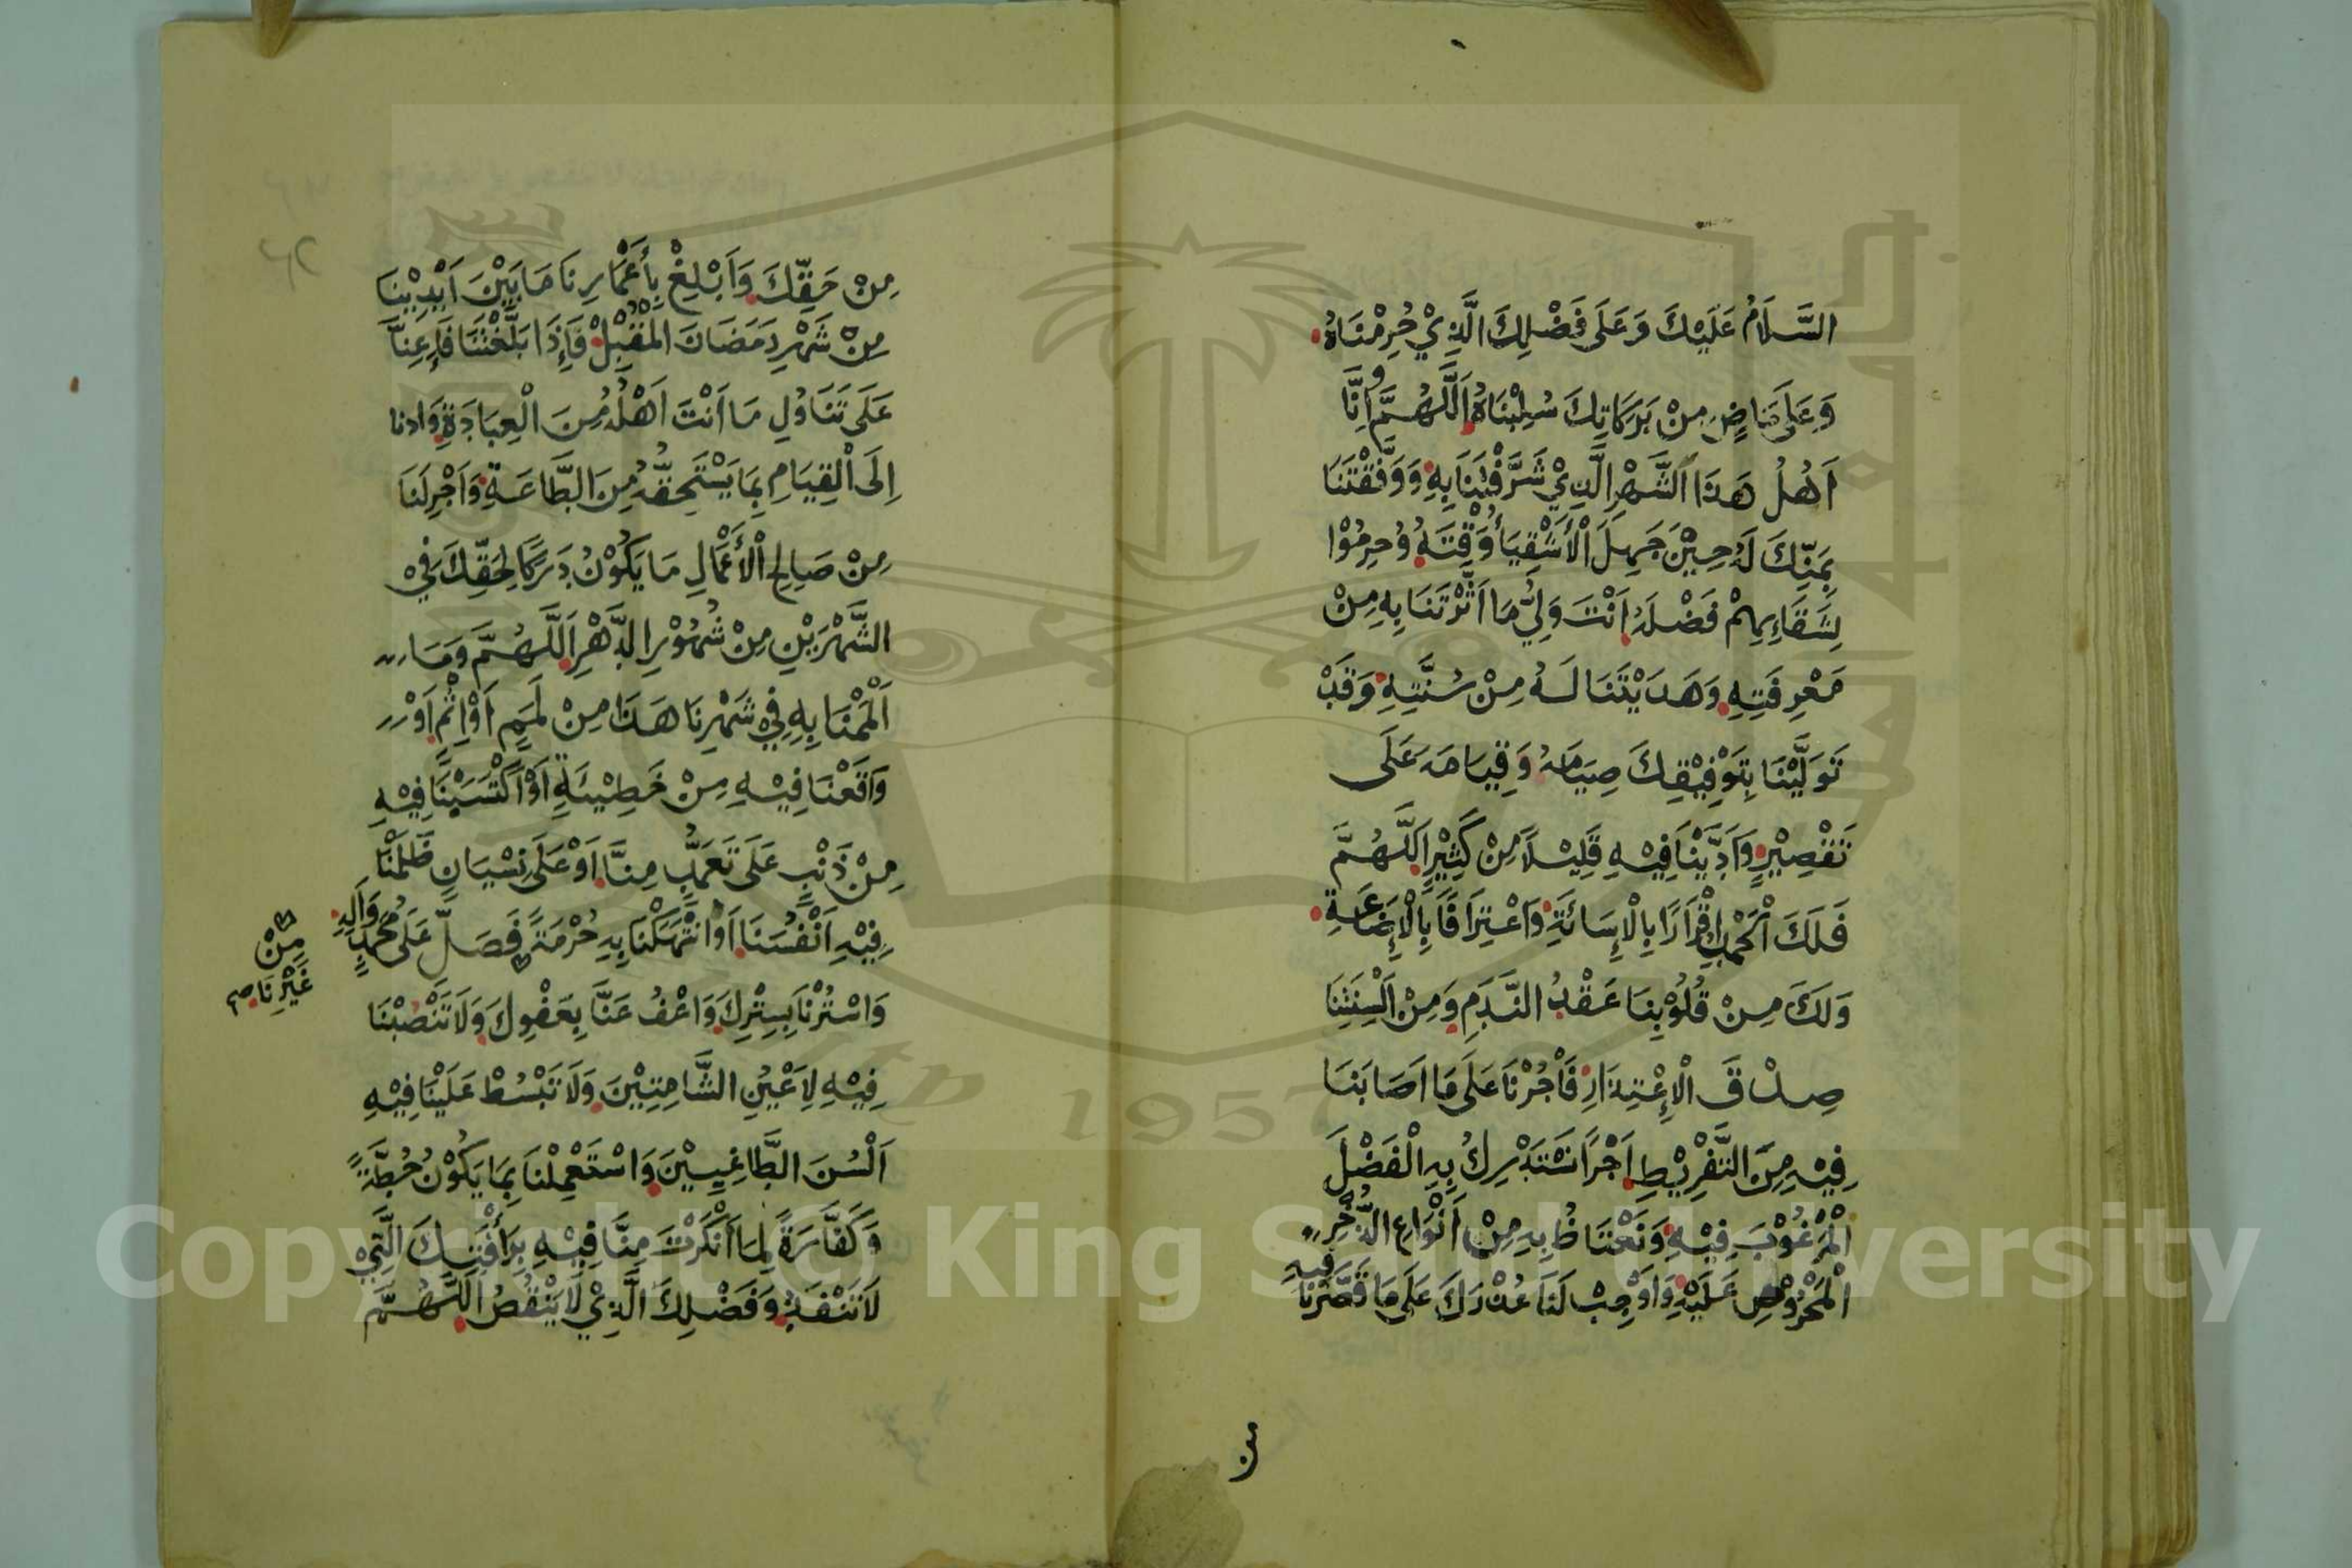 السَّلَامُ عَلَيْكَ وَعَلَى فَضْلِكَ الَّذِيْ حُرِمْنَاهُ
وَعَلَى مَاضٍ مِنْ بَرَكَاتِكَ سُلِبْنَاهُ اَللَّهُمَّ اِنَّا
اَهْلُ هَذَا الشَّهْرِ الَّذِيْ شَرَّفْتَنَا بِهِ وَوَفَّقْتَنَا
بِمَنِّكَ لَهُ حِيْنَ جَهِلَ الْأَشْقِيَاءُ وَقْتَهُ وَحُرِمُوْا
لِشَقَاءِهِمْ فَضْلَهُ اَنْتَ وَلِيُّ مَا اَثَرْتَنَا بِهِ مِنْ
مَعْرِفَتِهِ وَهَدَيْتَنَا لَهُ مِنْ سُنَّتِهِ وَقَدْ
تَوَلَّيْنَا بِتَوْفِيْقِكَ صِيَامَهُ وَقِيَامَهُ عَلَى
تَقْصِيْرٍ وَاَدَّيْنَا فِيْهِ قَلِيْلاً مِنْ كَثِيْرٍ اَللَّهُمَّ
فَلَكَ الْحَمْدُ اِقْرَارًا بِالْإِسَائَةِ وَاعْتِرَافًا بِالْإِضَاعَةِ
وَلَكَ مِنْ قُلُوْبِنَا عَقْدُ النَّدَمِ وَمِنْ اَلْسِنَتِنَا
صِدْقَ الْاِعْتِذَارِ فَأْجُرْنَا عَلَى مَا اَصَابَنَا
فِيْهِ مِنَ التَّفْرِيْطِ اَجْرًا نَسْتَدْرِكُ بِهِ الْفَضْلَ
الْمَرْغُوْبَ فِيْهِ وَنَعْتَاضُ بِهِ مِنْ اَنْوَاعِ الذُّخْرِ
الْمَحْرُوْصِ عَلَيْهِ وَاَوْجِبْ لَنَا عُذْرَكَ عَلَى مَا قَصَّرْنَا فِيْهِ
من
مِنْ حَقِّكَ وَاَبْلِغْ بِأَعْمَارِنَا مَا بَيْنَ اَيْدِيْنَا
مِنْ شَهْرِ رَمَضَانَ الْمُقْبِلْ فَإِذَا بَلَّغْتَنَا فَاَعِنَّا
عَلَى تَنَاوُلِ مَا اَنْتَ اَهْلُهُ مِنَ الْعِبَادَةِ وَادنا
اِلَى الْقِيَامِ بِمَا يَسْتَحِقُّهُ مِنَ الطَّاعَةِ وَاَجْرِ لَنَا
مِنْ صَالِحِ الْأَعْمَالِ مَا يَكُوْنُ دَرَكًا لِحَقِّكَ فِيْ
الشَّهْرَيْنِ مِنْ شُهُوْرِ الدَّهْرِ اَللَّهُمَّ وَمَا
اَلْمَمْنَا بِهِ فِيْ شَهْرِنَا هَذَا مِنْ لَمَمٍ اَوْ اِثْمٍ اَوْ
وَاقَعْنَا فِيْهِ مِنْ خَطِيْئَةٍ اَوْ اَكْتَسَبْنَا فِيْهِ
مِنْ ذَنْبٍ عَلَى تَعَمُّدٍ مِنَّا اَوْ عَلَى نِسْيَانٍ ظَلَمْنَا
فِيْهِ اَنْفُسَنَا اَوِ انْتَهَكْنَا بِهِ حُرْمَةً فَصَلِّ عَلَى مُحَمَّدٍ وَآلِهِ
مِنْ
غَيْرِنَا صح
وَاسْتُرْنَا بِسِتْرِكَ وَاعْفُ عَنَّا بِعَفْوِكَ وَلَا تَنْصِبْنَا
فِيْهِ لِاَعْيُنِ الشَّامِتِيْنَ وَلَا تَبْسُطْ عَلَيْنَا فِيْهِ
اَلْسُنَ الطَّاغِيِيْنَ وَاسْتَعْمِلْنَا بِمَا يَكُوْنُ حُطَّةً
وَكَفَّارَةً لِمَا اَنْكَرْتَ مِنَّا فِيْهِ بِرَأْفَتِكَ الَّتِيْ
لَا تَنْفَدُ وَفَضْلِكَ الَّذِيْ لَا يَنْقُصُ اَللَّهُمَّ
1957
Copyright © King Saud University